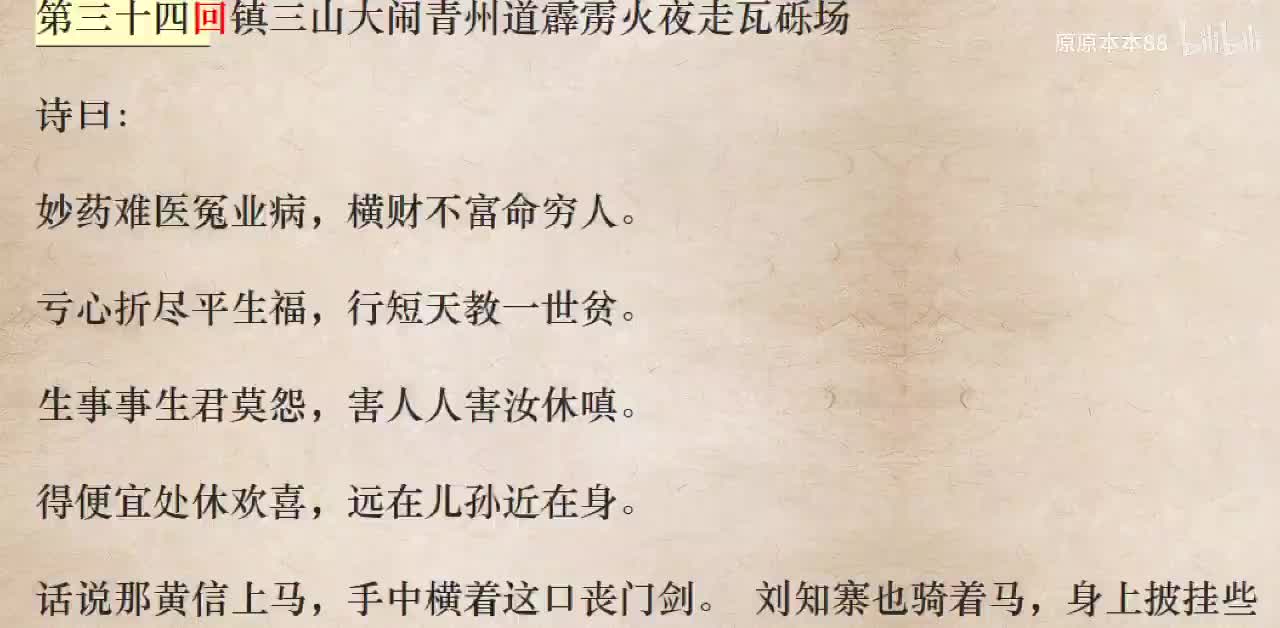 第三十四回镇三山大闹青州道霹雳火夜走瓦砾场
原原本本88 bilibili
诗曰:
妙药难医冤业病，横财不富命穷人。
亏心折尽平生福，行短天教一世贫。
生事事生君莫怨，害人人害汝休嗔。
得便宜处休欢喜，远在儿孙近在身。
话说那黄信上马，手中横着这口丧门剑。 刘知寨也骑着马，身上披挂些